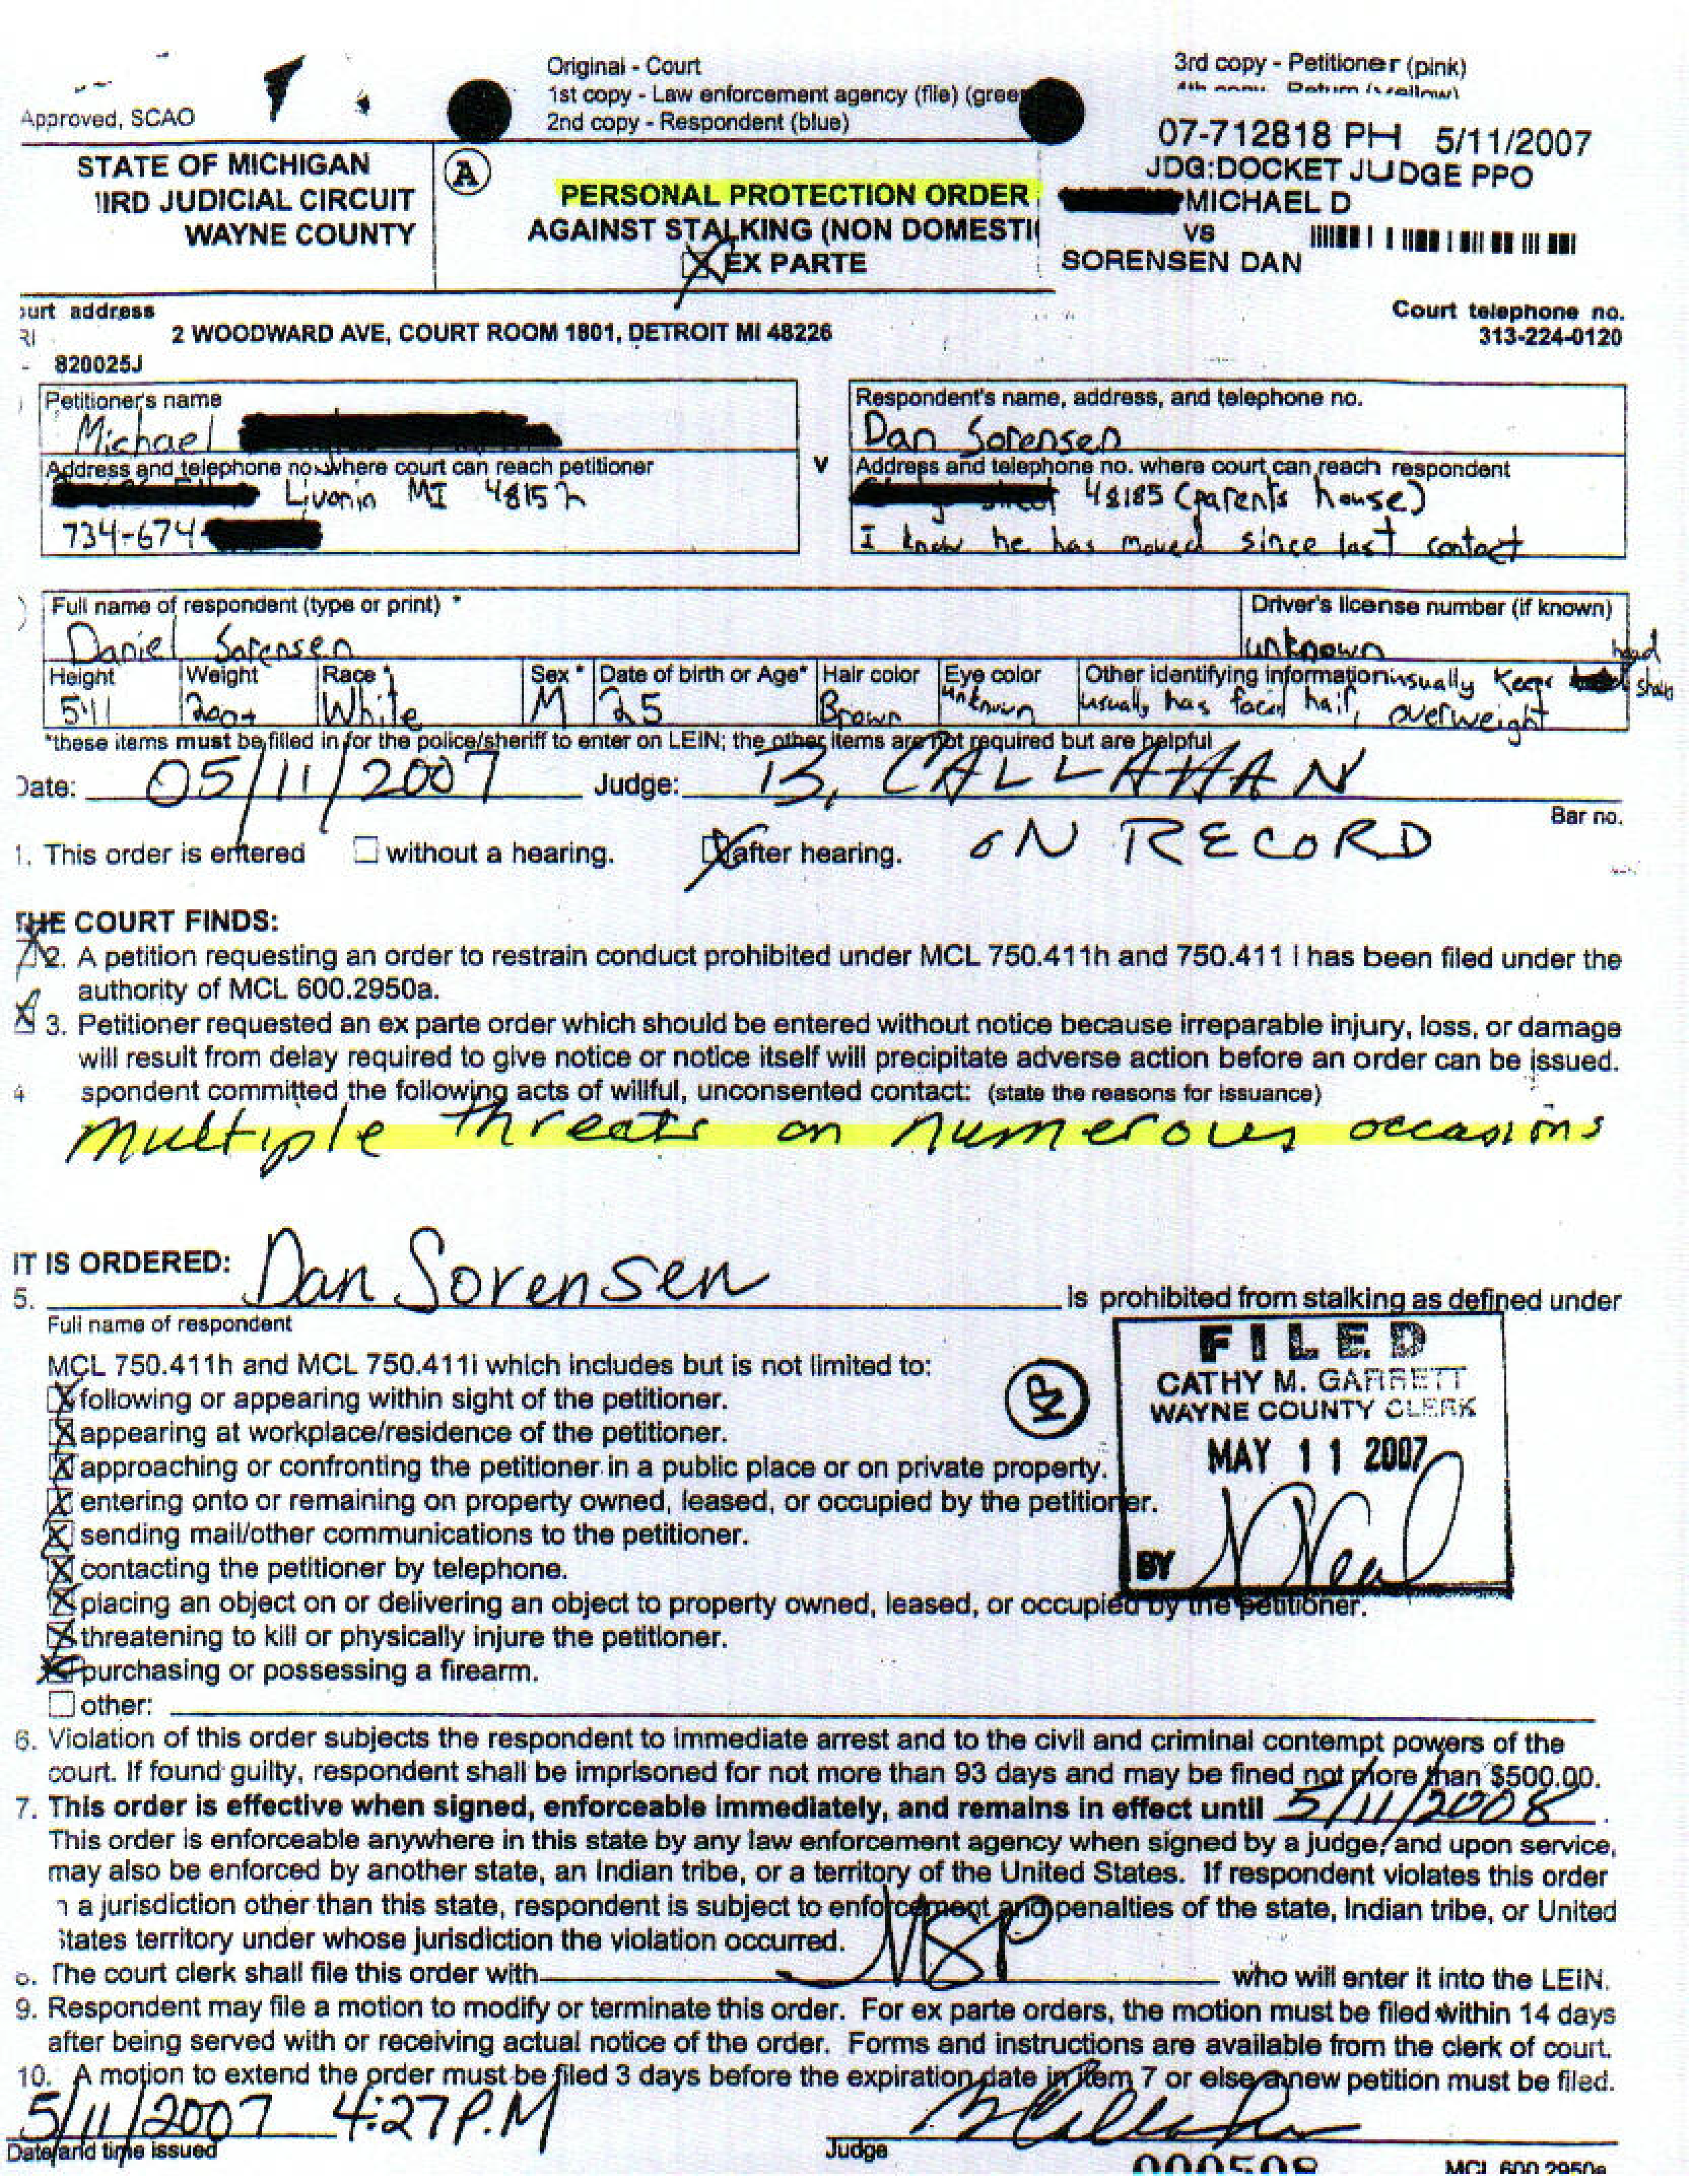 Original - Court
1st copy - Law enforcement agency (file) (gree
2nd copy - Respondent (blue)
3rd copy - Petitioner (pink)
4th copy Return (yellow)
Approved, SCAO
STATE OF MICHIGAN
IIRD JUDICIAL CIRCUIT
WAYNE COUNTY
A
PERSONAL PROTECTION ORDER
AGAINST STALKING (NON DOMESTI
EX PARTE
07-712818 PH 5/11/2007
JDG:DOCKET JUDGE PPO
MICHAEL D
VS
SORENSEN DAN
urt address
RI
2 WOODWARD AVE, COURT ROOM 1801, DETROIT MI 48226
820025J
Court telephone no.
313-224-0120
Petitioner's name
Michael
Address and telephone no. where court can reach petitioner
Livonia MI 48152
734-674-
v
Respondent's name, address, and telephone no.
Dan Sorensen
Address and telephone no. where court can reach respondent
48185 (parents house)
I know he has moved since last contact
Full name of respondent (type or print) *
Daniel Sorensen
Driver's license number (if known)
unknown
Height Weight Race * Sex * Date of birth or Age* Hair color Eye color Other identifying information usually keeps head shaved
5'11 200+ White M 25 Brown unknown usually has facial hair, overweight
*these items must be filled in for the police/sheriff to enter on LEIN; the other items are not required but are helpful
Date: 05/11/2007 Judge: B. CALLAHAN
Bar no.
1. This order is entered without a hearing. after hearing. ON RECORD
THE COURT FINDS:
2. A petition requesting an order to restrain conduct prohibited under MCL 750.411h and 750.411 i has been filed under the
authority of MCL 600.2950a.
3. Petitioner requested an ex parte order which should be entered without notice because irreparable injury, loss, or damage
will result from delay required to give notice or notice itself will precipitate adverse action before an order can be issued.
4 spondent committed the following acts of willful, unconsented contact: (state the reasons for issuance)
Multiple threats on numerous occasions
IT IS ORDERED:
5. Dan Sorensen is prohibited from stalking as defined under
Full name of respondent
MCL 750.411h and MCL 750.411i which includes but is not limited to:
following or appearing within sight of the petitioner.
appearing at workplace/residence of the petitioner.
approaching or confronting the petitioner in a public place or on private property.
entering onto or remaining on property owned, leased, or occupied by the petitioner.
sending mail/other communications to the petitioner.
contacting the petitioner by telephone.
placing an object on or delivering an object to property owned, leased, or occupied by the petitioner.
threatening to kill or physically injure the petitioner.
purchasing or possessing a firearm.
other:
FILED
CATHY M. GARRETT
WAYNE COUNTY CLERK
MAY 11 2007
BY
6. Violation of this order subjects the respondent to immediate arrest and to the civil and criminal contempt powers of the
court. If found guilty, respondent shall be imprisoned for not more than 93 days and may be fined not more than $500.00.
7. This order is effective when signed, enforceable immediately, and remains in effect until 5/11/2008.
This order is enforceable anywhere in this state by any law enforcement agency when signed by a judge, and upon service,
may also be enforced by another state, an Indian tribe, or a territory of the United States. If respondent violates this order
n a jurisdiction other than this state, respondent is subject to enforcement and penalties of the state, Indian tribe, or United
States territory under whose jurisdiction the violation occurred.
8. The court clerk shall file this order with MSP who will enter it into the LEIN.
9. Respondent may file a motion to modify or terminate this order. For ex parte orders, the motion must be filed within 14 days
after being served with or receiving actual notice of the order. Forms and instructions are available from the clerk of court.
10. A motion to extend the order must be filed 3 days before the expiration date in item 7 or else a new petition must be filed.
5/11/2007 4:27 P.M
Date and time issued
Judge
000508
MCL 600.2950a